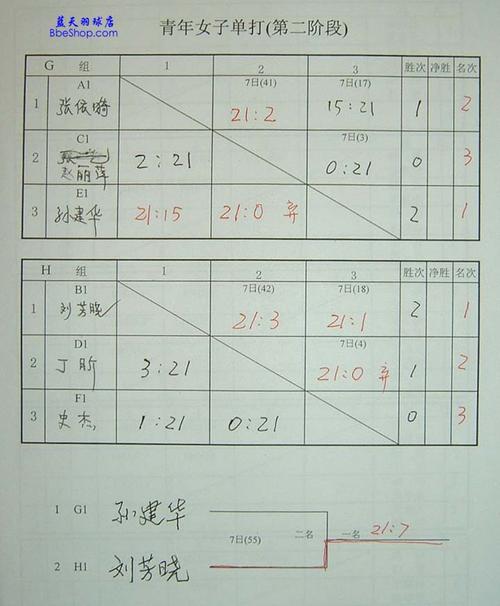 蓝天羽球店
BbeShop.com
青年女子单打(第二阶段)
G 组 1 2 3 胜次 净胜 名次
A1 7日(41) 7日(17)
1 张依 21:2 15:21 1 2
C1 7日(3)
2 赵丽萍 2:21 0:21 0 3
E1
3 孙建华 21:15 21:0 弃 2 1
H 组 1 2 3 胜次 净胜 名次
B1 7日(42) 7日(18)
1 刘芳晓 21:3 21:1 2 1
D1 7日(4)
2 丁 3:21 21:0 弃 1 2
F1
3 史杰 1:21 0:21 0 3
1 G1 孙建华
7日(55) 二名 一名 21:7
2 H1 刘芳晓